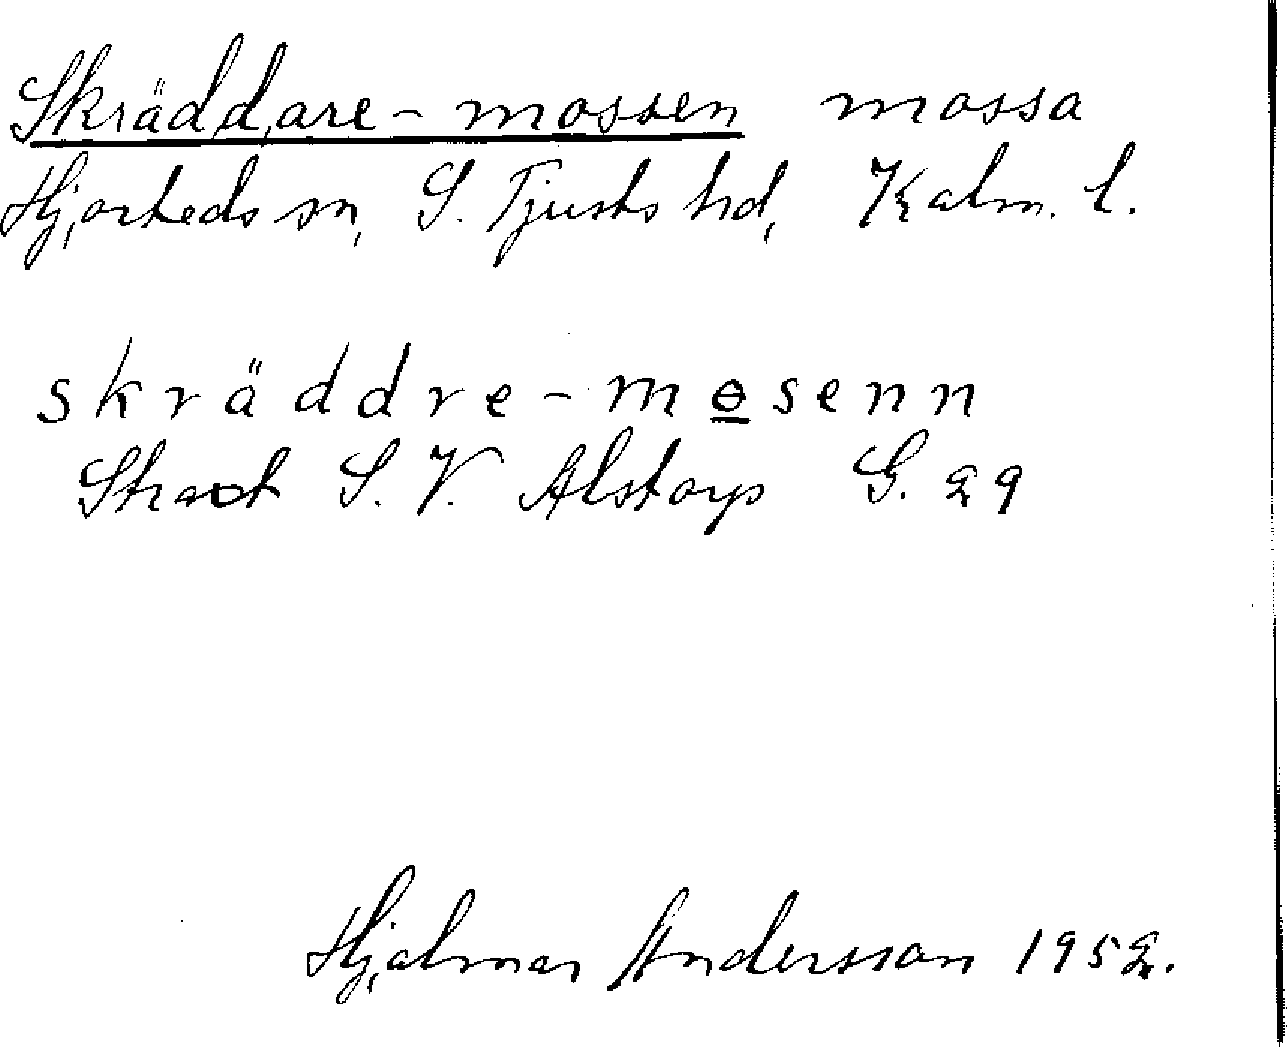 Skräddare-mossen mossa
Hjorteds sn, S. Tjusts hd, Kalm. l.
skräddre-mosenn
Strax S. V. Alstorp G. 29
Hjalmar Andersson 1952.